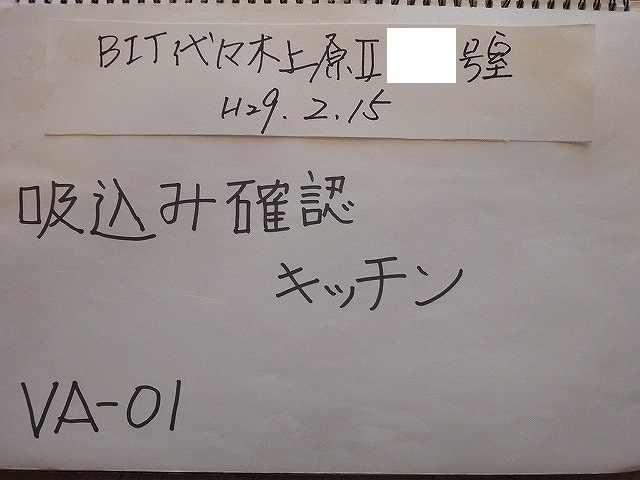 BIT代々木上原II 号室
H29.2.15
吸込み確認
キッチン
VA-01